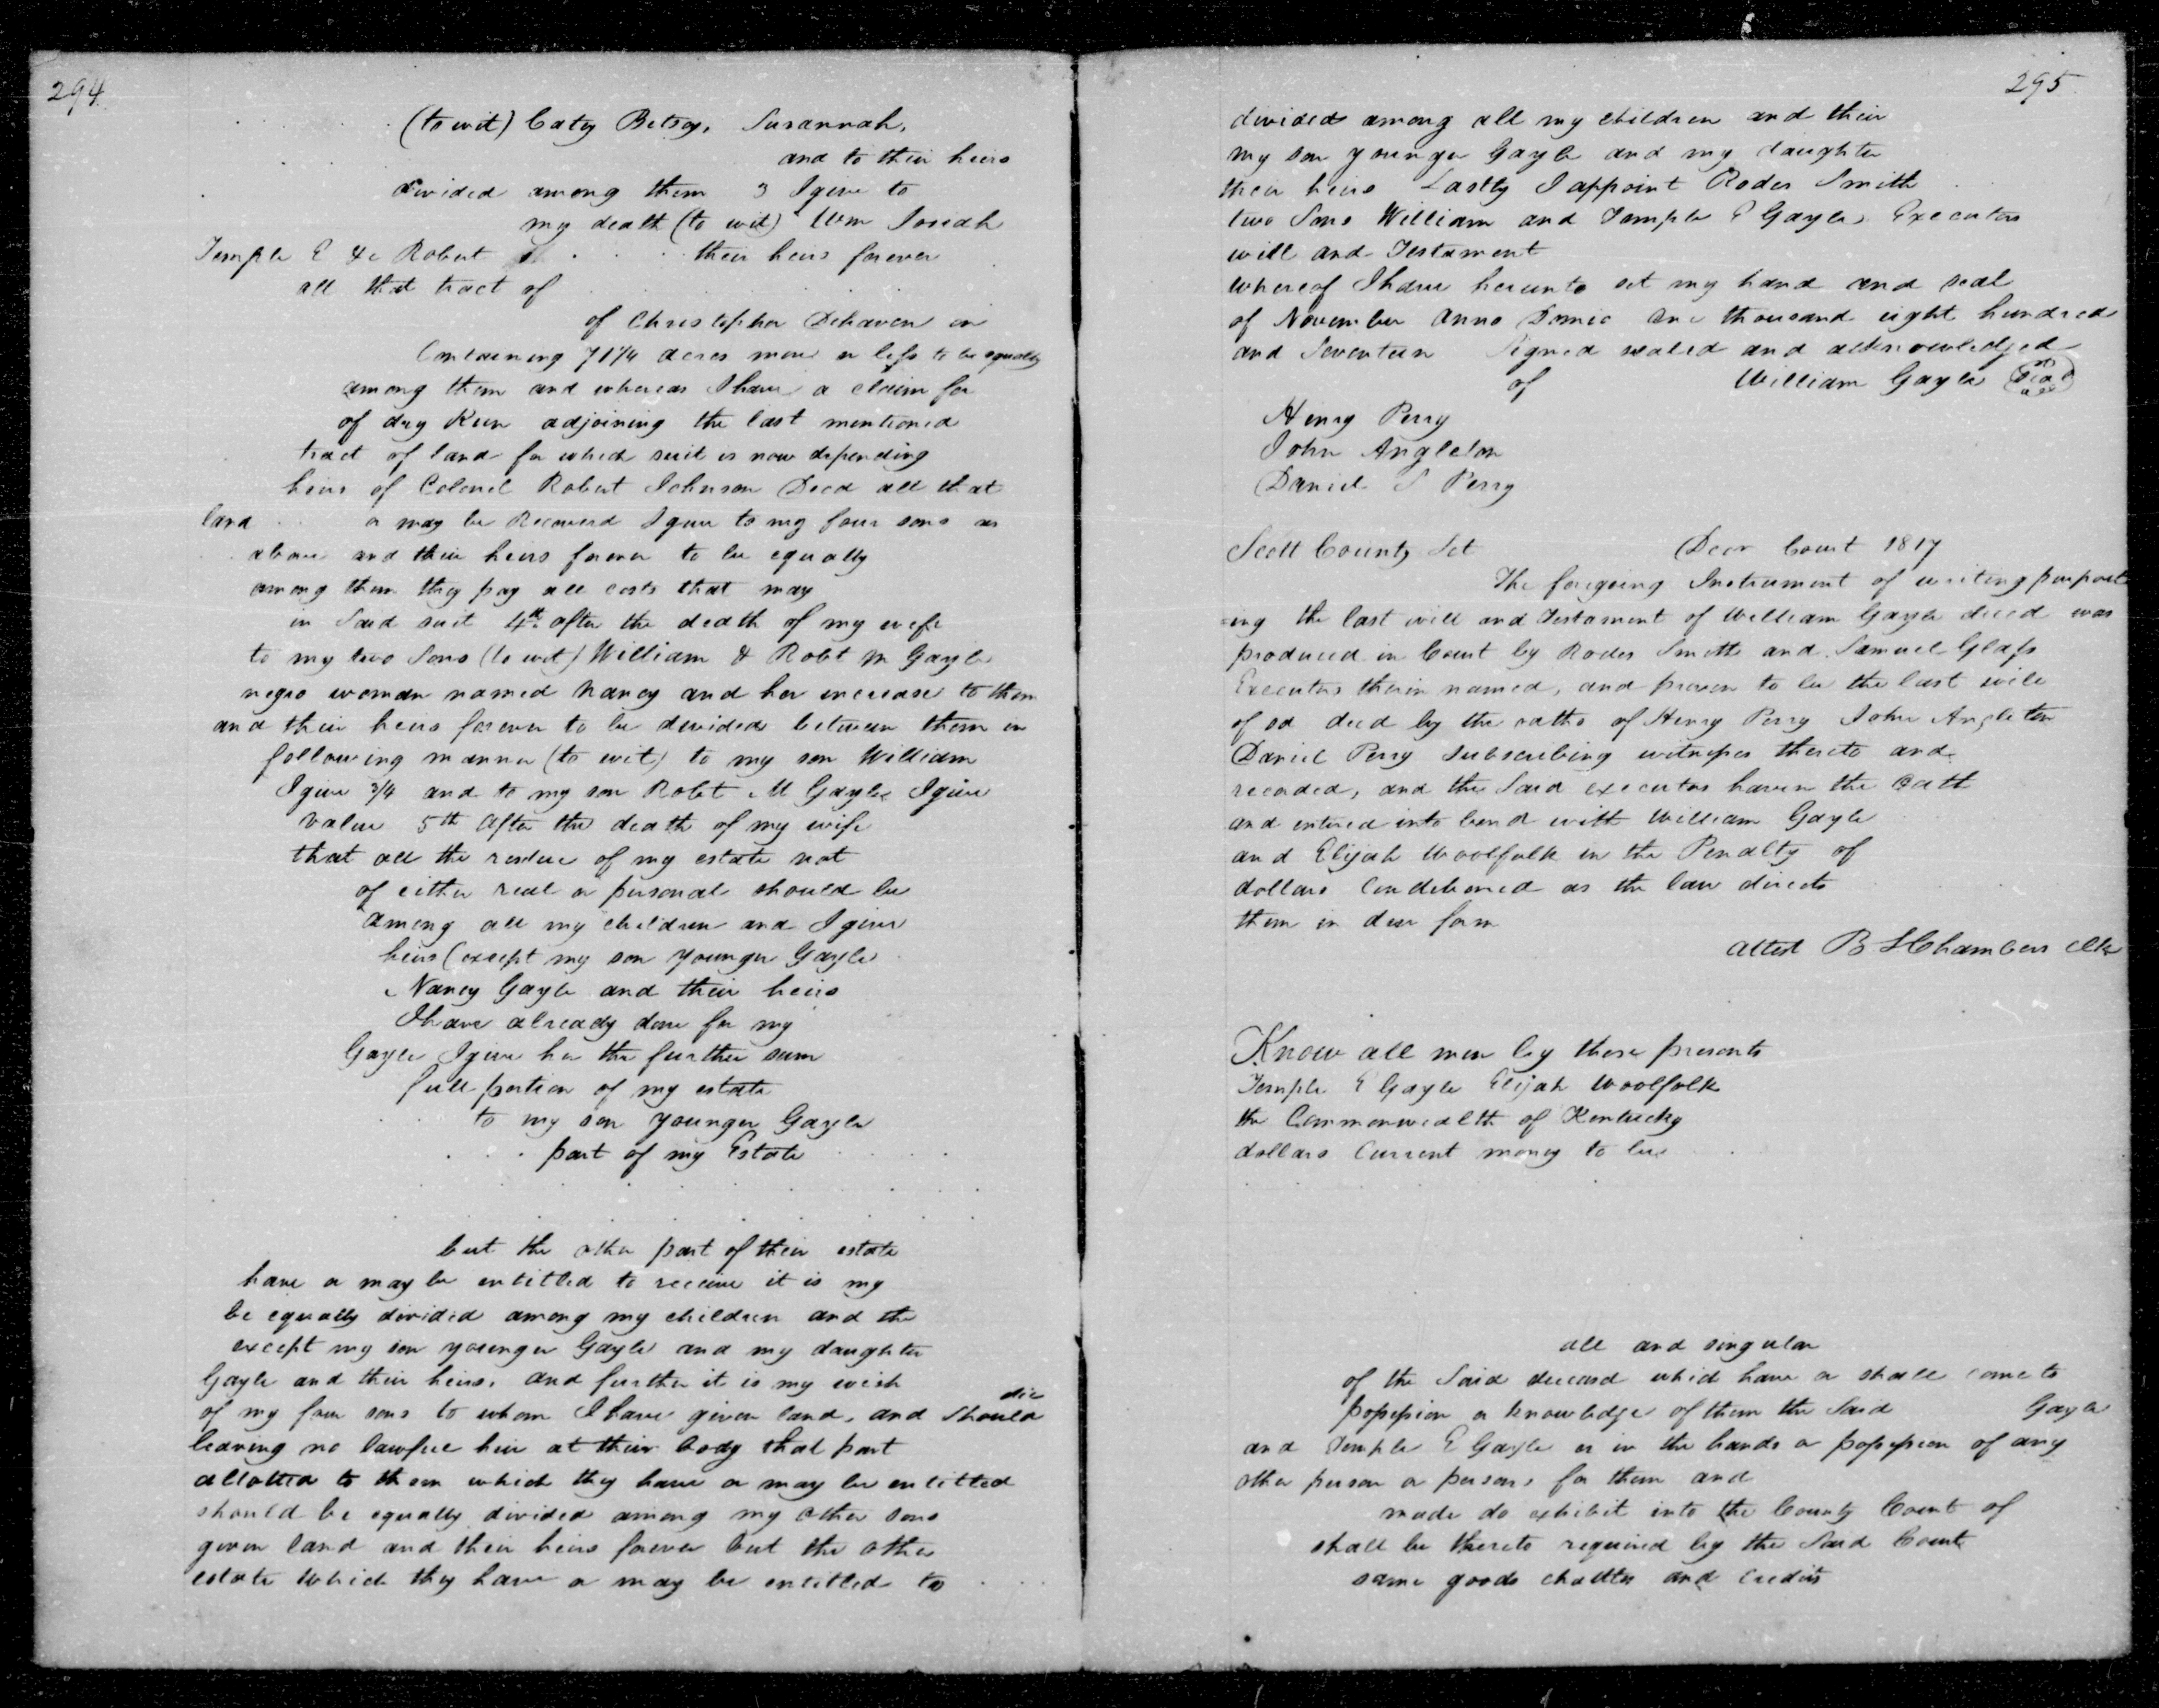 294
(to wit) Caty Betsy, Susannah,
and to their heirs
divided among them 3 I give to
my death (to wit) Wm Josiah
Temple E & Robert their heirs forever
all that tract of
of Christopher Dehaven in
Containing 71¼ acres more or less to be equally
among them and whereas I have a claim for
of dry Run adjoining the last mentioned
tract of land for which suit is now depending
heirs of Colonel Robert Johnson Decd all that
land or may be Recovered I give to my four sons as
above and their heirs forever to be equally
among them they pay all costs that may
in Said suit 4th after the death of my wife
to my two Sons (to wit) William & Robt M Gayle
negro woman named Nancy and her increase to them
and their heirs forever to be devided between them in
following manner (to wit) to my son William
I give 3/4 and to my son Robt M Gayle I give
value 5th After the death of my wife
that all the residue of my estate not
of either real or personal should be
among all my children and I give
heirs (except my son younger Gayle
Nancy Gayle and their heirs
I have already done for my
Gayle I give her the further sum
full portion of my estate
to my son younger Gayle
part of my Estate
but the other part of their estate
have or may be entitled to receive it is my
be equally divided among my children and the
except my son younger Gayle and my daughter
Gayle and their heirs, and further it is my wish
of my four sons to whom I have given land, and should die
leaving no lawfull heir at their body that part
allotted to them which they have or may be entitled
should be equally divided among my other sons
given land and their heirs forever but the other
estate which they have or may be entitled to
295
divided among all my children and their
my son younger Gayle and my daughter
their heirs Lastly I appoint Rodes Smith
two Sons William and Temple E Gayle Executors
will and Testament
whereof I have hereunto set my hand and seal
of November Anno Domie one thousand eight hundred
and Seventeen Signed sealed and acknowledged
of William Gayle Seal
Henry Perry
John Angleton
Daniel S Perry
Scott County Sct Decr Court 1817
The foregoing Instrument of writing purport
=ing the last will and Testament of William Gayle decd was
produced in Court by Rodes Smith and Samuel Glass
Executors therin named, and proven to be the last will
of sd decd by the oaths of Henry Perry John Angleton
Daniel Perry Subscribing witnesses thereto and
recorded, and the Said executors haven the oath
and entered into bond with William Gayle
and Elijah Woolfolk in the Penalty of
dollars Conditioned as the law directs
them in due form
attest B S Chambers Clk
Know all men by these presents
Temple E Gayle Elijah Woolfolk
the Commonwealth of Kentucky
dollars Current money to be
all and singular
of the Said deceased which have or shall come to
possession or knowledge of them the Said Gayle
and Temple E Gayle or in the hands or possession of any
other person or persons for them and
made do exhibit into the County Court of
shall be thereto required by the Said Court
same goods chattles and credits